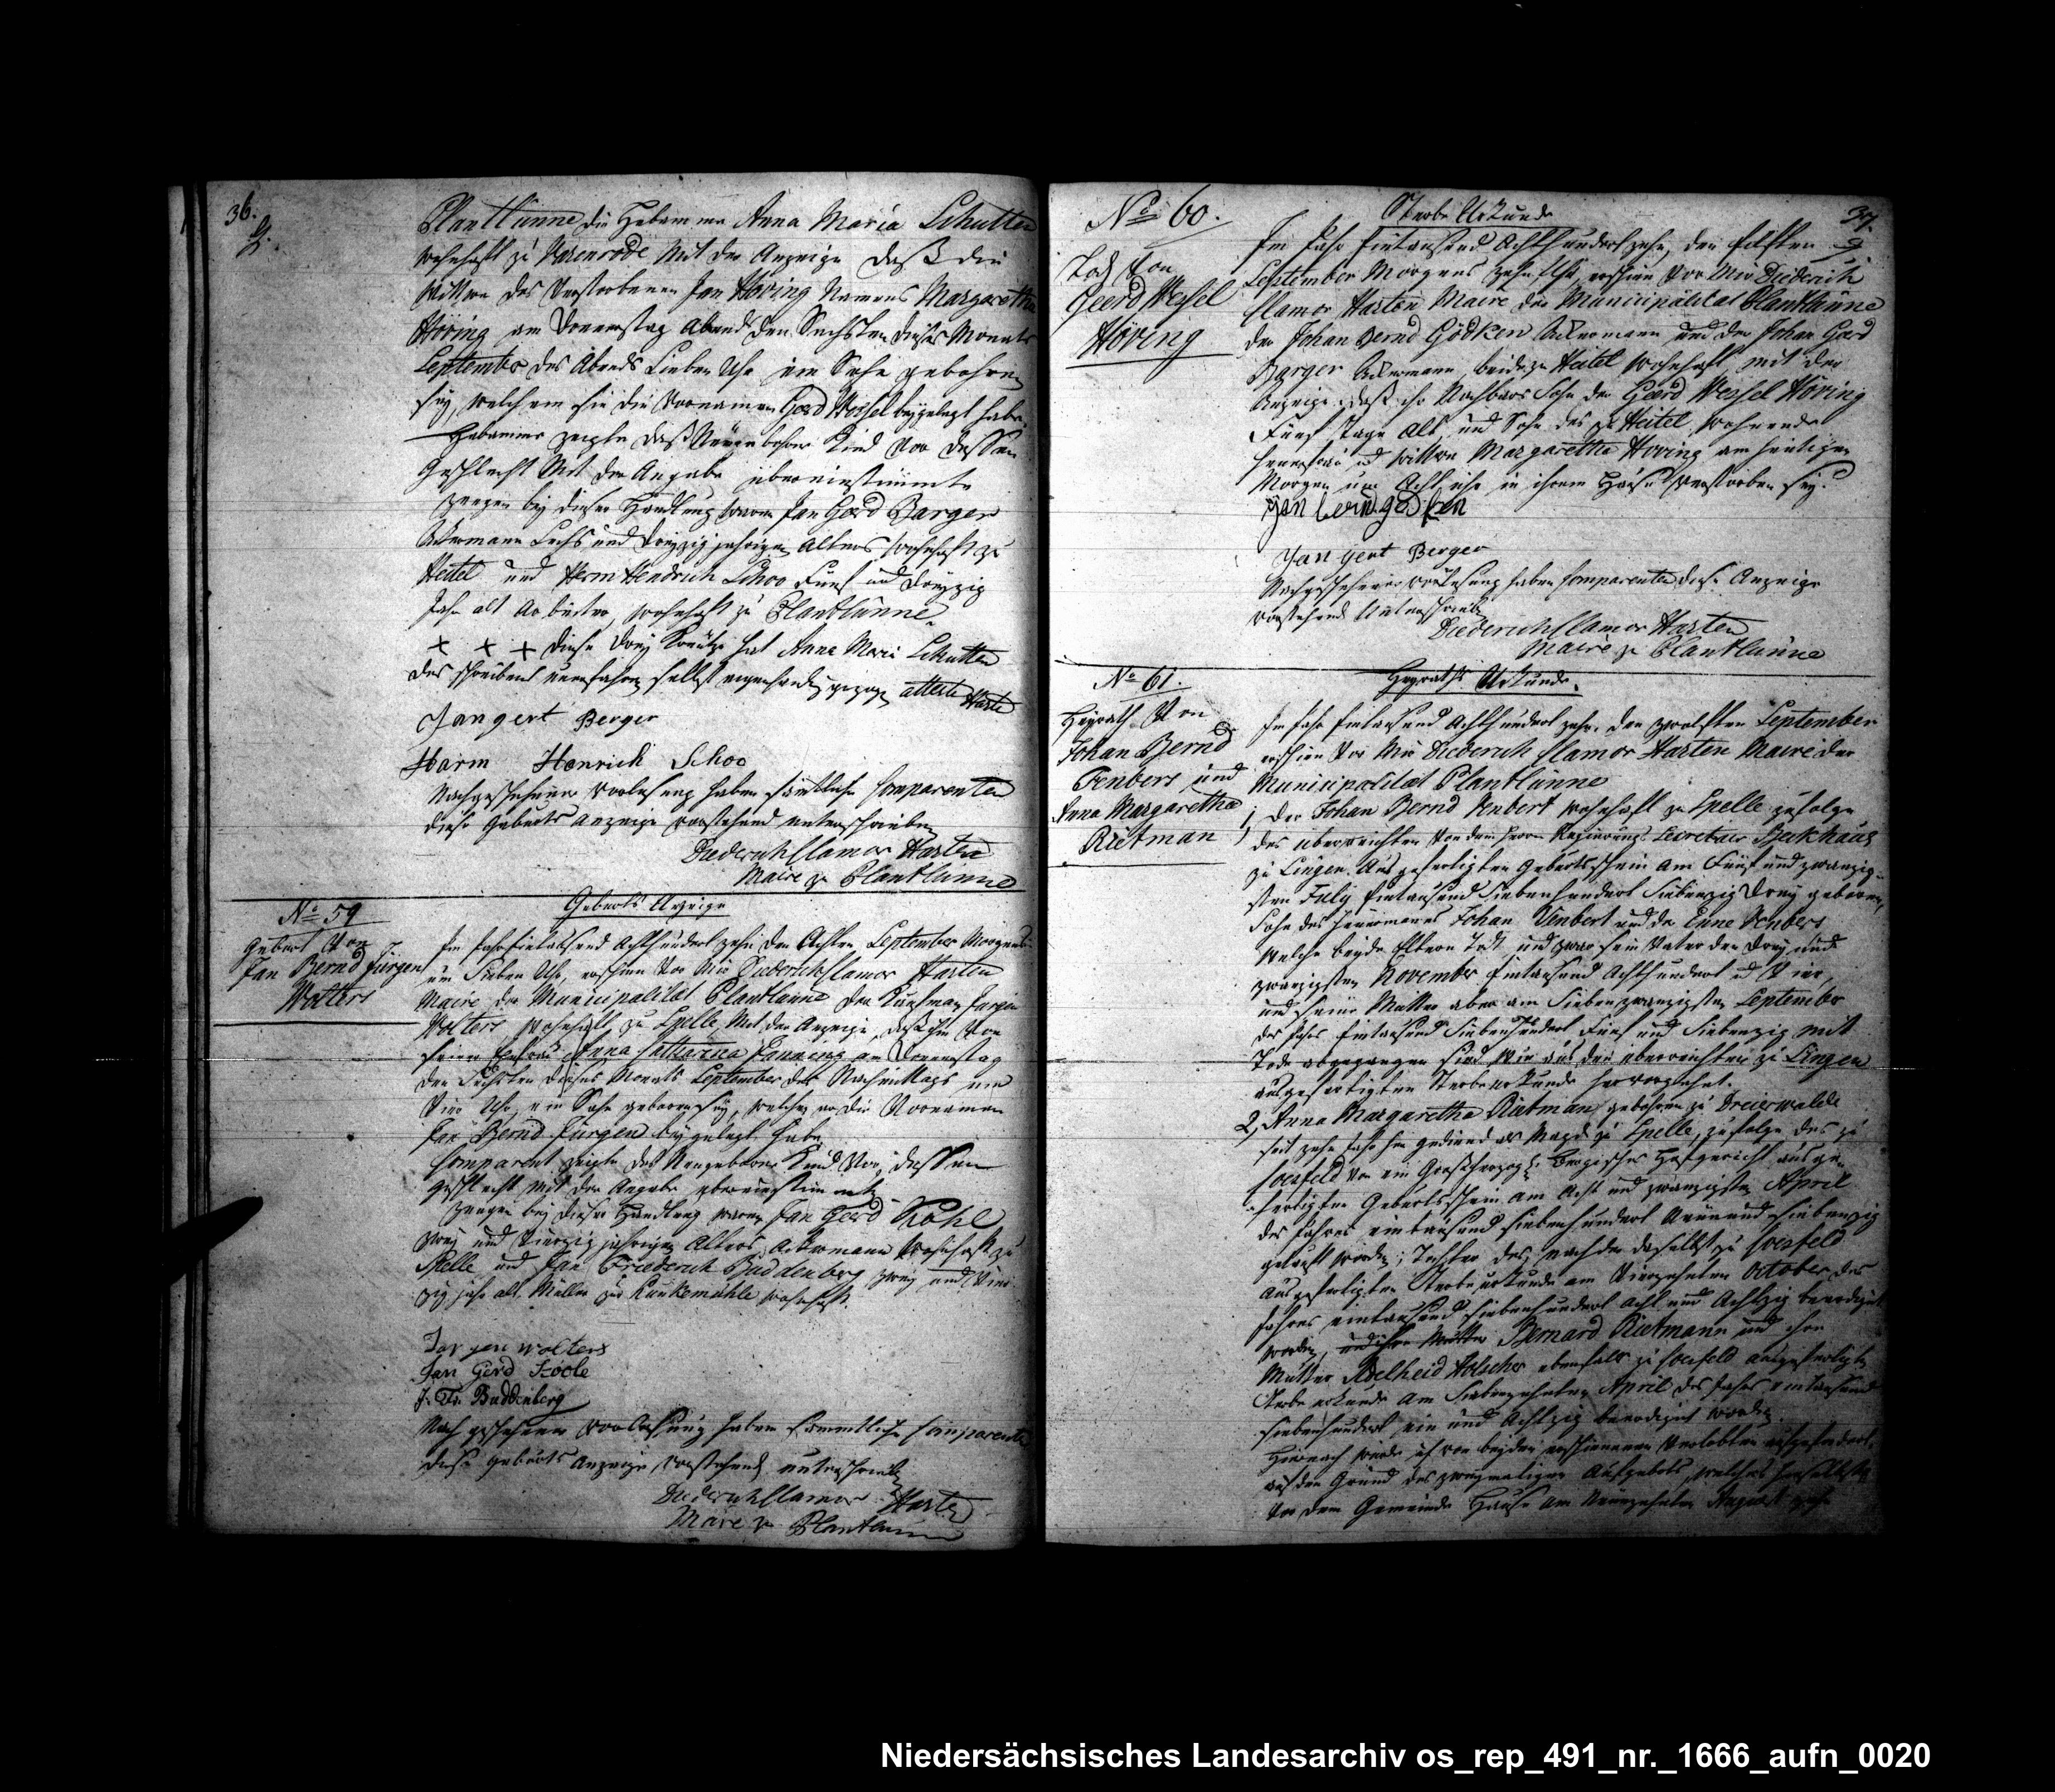 36.
Plantlünne die Hebamme Anna Maria Schutten
wohnhaft zu Varenrode Mit der Anzeige daß die
Wittwe des Verstorbenen Jan Höving Namens Margaretha
Höving am Donnerstag Abend den Sechsten dieses Monats
September des Abends Sieben Uhr ein Sohn gebohren
sey, welchem sie die Vornamen Gerd Wessel beygelegt habe.
Hebamme zeigte das Neugebohrne Kind vor dessen
Geschlecht Mit der Angabe übereinstimmte
Zeugen bey dieser Handlung waren Jan Gerd Barger
Ackermann Sechs und dreyzig jahrigen Alters wohnhaft zu
Heitel und Herm Hendrich Schoo Fünf und dreyzig
Jahr alt Arbeiter, wohnhaft zu Plantlünne
+ + + diese drey Kreutze hat Anna Maria Schutten
des schreibens unerfahren selbst eigenhandig gezogen attestir Harten
Jangert Berger
Harm Henrich Schoo
Nachgeschehener Vorlesung haben sämtliche Comparenten
diese Geburts Anzeige vorstehend unterschrieben
Diederich Clamor Harten
Maire zu Plantlünne
No 59
Geburt von
Jan Bernd Jürgen
Wolters
Geburts Anzeige
Im Jahr Eintausend Achthundert zehn den Achten September Morgens
um Sieben Uhr, erschien vor Mir Diederich Clamor Harten
Maire der Municipalität Plantlünne der Kaufman Jurgen
Wolters wohnhaft zu Spelle Mit der Anzeige, daß ihm von
seiner Ehefrau Anna Catharina Janning am Donnerstag
den Sechsten dieses Monats September des Nachmittags um
Vier Uhr, ein Sohn gebohren sey, welchen er die Vornamen
Jan Bernd Jürgen beygelegt habe
Comparent zeigte das Neugeborne Kind vor, dessen
Geschlecht mit der Angabe übereinstimmete
Zeugen bey dieser Handlung waren Jan Gerd Kohle
zwey und Vierzig jahrigen Alters, Ackermann wohnhaft zu
Spelle und Jan Friederich Buddenberg zwey und Vier
zig Jahr alt, Müller zu Kunkemühle wohnhaft.
Jurgen wolters
Jan Gerd Koole
J. Fr. Buddenberg
Nach geschehener Vorlesung haben sämmtliche Comparenten
diese Geburts Anzeige vorstehend unterschrieben
Diederich Clamor Harten
Maire zu Plantlünne
37.
No 60.
Tod von
Geerd Wessel
Höving
Sterbe Urkunde
Im Jahr Eintausend Achthundert zehn, den Eilften
September Morgens zehn Uhr, erschien vor Mir Diederich
Clamor Harten Maire der Municipalität Plantlünne
der Johan Bernd Gödken Ackermann und der Johan Gerd
Barger Ackermann, beide zu Heitel wohnhaft, mit der
Anzeige, daß ihr Nachbars Sohn der Geerd Wessel Höving
Fünf Tage alt, und Sohn des zu Heitel wohnende
Heuerfrau und Wittwe Margaretha Hoving am heutigen
Morgen um Acht Uhr in ihrem Hause verstorben sey.
jan bernd godken
Jan gert Berger
Nachgeschehener Vorlesung haben Comparenten diese Anzeige
vorstehend Unterschrieben
Diederich Clamor Harten
Maire zu Plantlünne
No 61.
Heyrath von
Johan Bernd
Venbert und
Anna Margaretha
Rietman
Heyraths Urkunde.
Im Jahr Eintausend Achthundert zehn, den zwolften September
erschien vor Mir Diederich Clamor Harten Maire der
Municipalität Plantlünne
1, Der Johan Bernd Venbert wohnhaft zu Spelle zufolge
des überreichten von dem Herrn Regierungs Secretair Beckhaus
zu Lingen Ausgefertigten Geburtsschein am Fünf und zwanzig
sten July Eintausend Siebenhundert Siebenzig drey geboren,
Sohn des Heuermanns Johan Venbert und der Enne Venbers
Welche beyde Eltern Todt und zwar sein Vater den drey und
zwanzigsten November Eintausend Achthundert und Vier,
und seine Mutter aber am Siebenzwanzigsten September
des Jahrs Eintausend Siebenhundert Fünf und Siebenzig mit
Tode abgegangen sind, wie aus den überreichten zu Lingen
ausgefertigten Sterbeurkunde hervorgehet.
2, Anna Margaretha Rietman gebohren zu Dreierwalde
seit zehn Jahr hier gedienet als Magd zu Spelle, zufolge des zu
Coesfeld von ein Großherzogl. Bergischen Hofgericht ausge
fertigten Geburtsschein am Acht und zwanzigsten April
des Jahres eintausend siebenhundert Neun und siebenzig
getauft worden; Tochter des, nach der daselbst zu Coesfeld
ausgefertigten Sterbeurkunde am Vierzehnten October des
Jahres eintausend siebenhundert acht und Achtzig beerdiget
worden, Bernard Rietmann und ihre
Mutter Adelheid Holscher ebenfals zu Coesfeld ausgefertigte
Sterbeurkunde am Siebenzehnten April des Jahrs eintausend
siebenhundert ein und Achtzig beerdiget worden.
Hiernach wurde ich von beyden erschienenen Verlobten aufgefordert,
auf den Grund des zweymaligen Aufgebots, welches hieselbst
vor dem Gemeinde Hause am Neunzehnten August zehn
Niedersächsisches Landesarchiv os_rep_491_nr._1666_aufn_0020